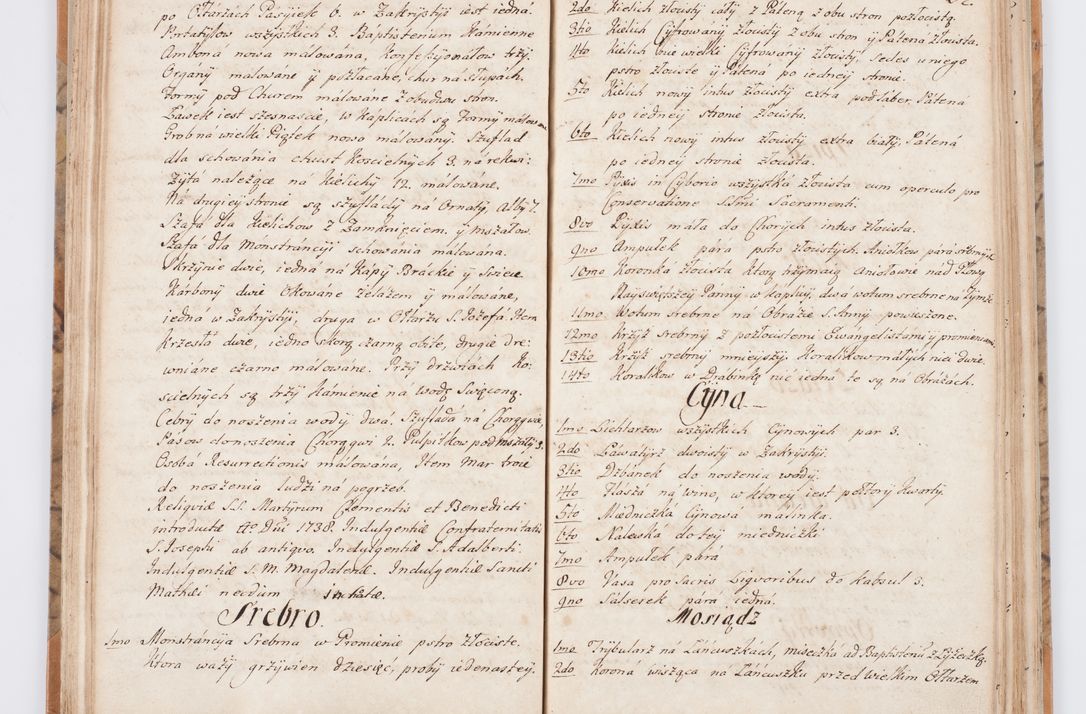 po Ołtarzach Pasyjek 6. w Zakrystyi iest iedna.
Portatylow wszystkich 3. Baptisterium Kamienne
Ambona nowa málowána, Konfessyonałow trzy.
Organy málowáne y pozłacane, chur na słupach.
Formy pod Churem málowáne z obudwu stron.
Ławek iest szesnascie, w Kaplicach są Formy málowane
Grobna wielki Piątek nowo málowány. Szuflad
dla schowánia chust Koscielnych 3. ná rekwi:
zyta należące ná Kielichy 12. málowáne.
Ná drugiey stronie są szuflady ná Ornaty, Alby 7.
Szafa dla Kielichow z Zamknięciem y Mszałow.
Szafa dla Monstráncyi schowánia málowána.
Skrzynie dwie, iedná ná Kapy Bráckie y swiece
Kárbony dwie Okowáne żelázem y málowáne,
iedna w Zakrystyi, druga w Ołtarzu S. Jozefa. Item
Krzesła dwie, iedno skorą czarną obite, drugie dre:
wniáne czarno málowáne. Przy drzwiách Ko:
scielnych są trzy Kámienie ná wodę Swięconą.
Cebry do noszenia wody dwá. Szufladá ná Chorągwie,
Pasow do noszenia Chorągwi 2. Pulpitkow pod mszały 3.
Osobá Resurrectionis málowána, Item Mar troie
do noszenia ludzi ná pogrzeb.
Reliquiæ S.S. Martyrum Clementis et Benedicti
introductæ Aō Dni 1738. Indulgentiæ Confraternitatis
S. Josephi ab antiquo. Indulgentiæ S. Adalberti.
Indulgentiæ S. M. Magdalenæ. Indulgentiæ Sancti
Mathæi necdum
Srebro.
1mo Monstráncyia Srebrna w Promienie pstro złociste.
Ktora waży grzywien dziesięć, proby iedenastey.
2do Kielich złocisty cały z Páteną z obu stron pozłocistą.
3tio Kielich Cyfrowány złocisty z obu stron y Pátena złocista.
4to Kielich wielki Cyfrowány złocisty, Sedes u niego
pstro złociste y Pátena po iedney stronie.
5to Kielich nowy intus złocisty extra pod saber, Pátená
po iedney stronie złocista.
6to Kielich nowy intus złocisty extra biały, Pátená
po iedney stronie złocista.
7mo Pyxis in Cyborio wszystká złocista cum operculo pro
Conservatione SSmi Sacramenti.
8vo Pyxis máła do Chorych intus złocista.
9no Ampułek pára pstro złocistych. Aniołkow pára srebrnych
10mo Koronká złocista ktorą trzymaią Aniołowie nad Głową
Nayswiętszey Pánny w Kaplicy, dwá wotum srebrne ná
11mo Wotum srebrne ná Obrazie S. Anny powieszone.
12mo Krzyż srebrny z pozłocistemi Ewángelistami y promieniami
13tio Krzyż srebrny mnieyszy. Koralikow máłych nici dwie.
14to Koralikow w Drabinkę nić iedná te są ná Obrazách.
Cyna
1mo Lichtarzow wszystkich Cynowych par 3.
2do Láwatyrz dwoisty w Zakrystyi.
3tio Dzbánek do noszenia wody.
4to Flaszá ná wino, w ktorey iest połtory kwarty.
5to Miedniczka Cynowa máłinka.
6to Nalewka do tey miedniczki
7mo Ampułek pára
8vo Vasa pro Sacris Liquoribus do kabsul 3.
9no Salserek párá iedná.
Mosiądz
1mo Trybularz ná Láńcuszkách, miseczka ad Baptisterium z Łyżeczką
2do Koroná wisząca na Láńcuszku przed wielkim Ołtarzem